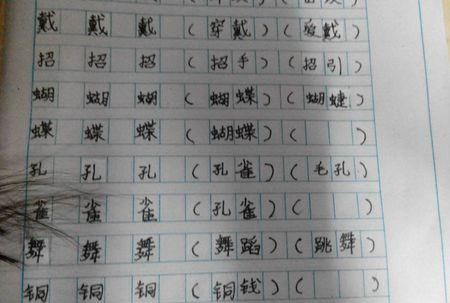 戴 戴 戴 (穿戴) (爱戴)
招 招 招 (招手) (招引)
蝴 蝴 蝴 (蝴蝶) (蝴蝶)
蝶 蝶 蝶 (蝴蝶) ( )
孔 孔 孔 (孔雀) (毛孔)
雀 雀 雀 (孔雀) ( )
舞 舞 舞 (舞蹈) (跳舞)
铜 铜 铜 (铜钱) ( )